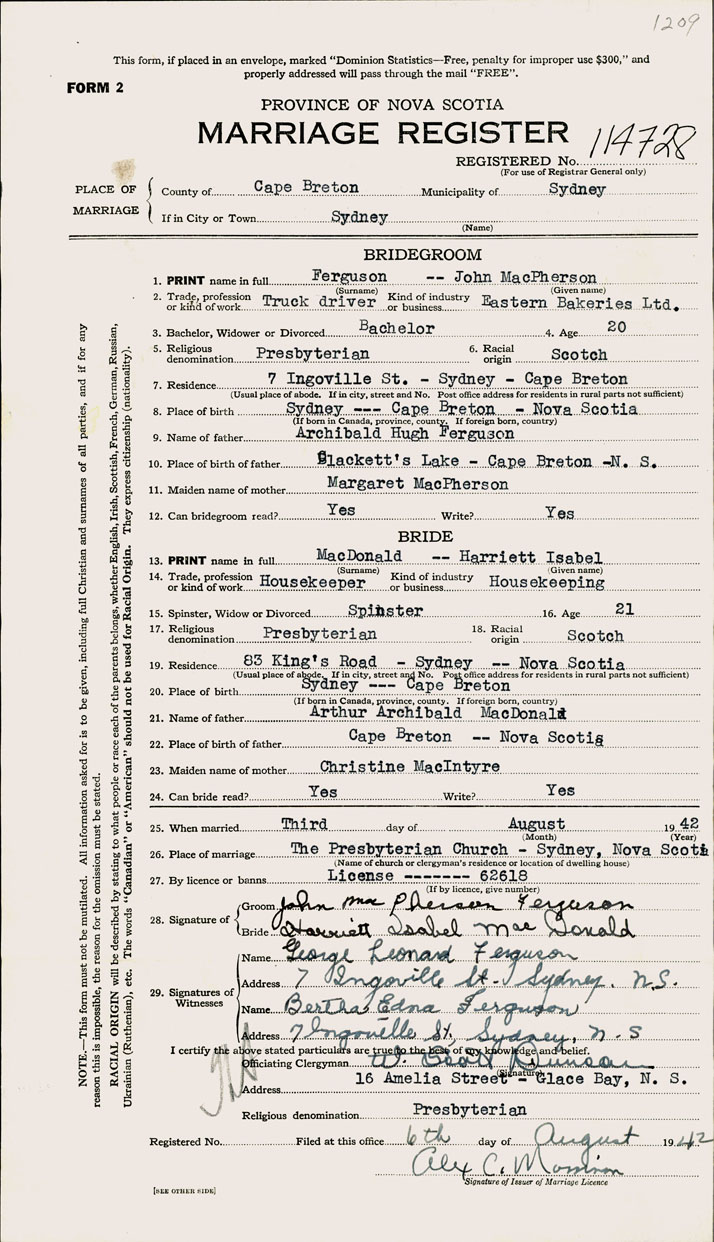 1209
This form, if placed in an envelope, marked "Dominion Statistics—Free, penalty for improper use $300," and
properly addressed will pass through the mail "FREE".
FORM 2
PROVINCE OF NOVA SCOTIA
MARRIAGE REGISTER
114728
REGISTERED No.
(For use of Registrar General only)
PLACE OF MARRIAGE
County of Cape Breton Municipality of Sydney
If in City or Town Sydney
(Name)
BRIDEGROOM
1. PRINT name in full Ferguson -- John MacPherson
(Surname) (Given name)
2. Trade, profession or kind of work Truck driver Kind of industry or business Eastern Bakeries Ltd.
3. Bachelor, Widower or Divorced Bachelor 4. Age 20
5. Religious denomination Presbyterian 6. Racial origin Scotch
7. Residence 7 Ingoville St. - Sydney - Cape Breton
(Usual place of abode. If in city, street and No. Post office address for residents in rural parts not sufficient)
8. Place of birth Sydney --- Cape Breton - Nova Scotia
(If born in Canada, province, county. If foreign born, country)
9. Name of father Archibald Hugh Ferguson
10. Place of birth of father Blackett's Lake - Cape Breton -N. S.
11. Maiden name of mother Margaret MacPherson
12. Can bridegroom read? Yes Write? Yes
BRIDE
13. PRINT name in full MacDonald -- Harriett Isabel
(Surname) (Given name)
14. Trade, profession or kind of work Housekeeper Kind of industry or business Housekeeping
15. Spinster, Widow or Divorced Spinster 16. Age 21
17. Religious denomination Presbyterian 18. Racial origin Scotch
19. Residence 83 King's Road - Sydney -- Nova Scotia
(Usual place of abode. If in city, street and No. Post office address for residents in rural parts not sufficient)
20. Place of birth Sydney --- Cape Breton
(If born in Canada, province, county. If foreign born, country)
21. Name of father Arthur Archibald MacDonald
22. Place of birth of father Cape Breton -- Nova Scotia
23. Maiden name of mother Christine MacIntyre
24. Can bride read? Yes Write? Yes
25. When married Third day of August 1942
(Month) (Year)
26. Place of marriage The Presbyterian Church - Sydney, Nova Scoti
(Name of church or clergyman's residence or location of dwelling house)
27. By licence or banns License ------- 62618
(If by licence, give number)
28. Signature of
Groom John MacPherson Ferguson
Bride Harriett Isabel MacDonald
29. Signatures of Witnesses
Name George Leonard Ferguson
Address 7 Ingoville St. Sydney, N.S.
Name Bertha Edna Ferguson
Address 7 Ingoville St, Sydney, N-S
I certify the above stated particulars are true to the best of my knowledge and belief.
Officiating Clergyman W. Duncan
(Signature)
Address 16 Amelia Street - Glace Bay, N. S.
Religious denomination Presbyterian
Registered No. Filed at this office 6th day of August 1942
Alex C. Morrison
Signature of Issuer of Marriage Licence
[SEE OTHER SIDE]
NOTE.—This form must not be mutilated. All information asked for is to be given, including full Christian and surnames of all parties, and if for any
reason this is impossible, the reason for the omission must be stated.
RACIAL ORIGIN will be described by stating to what people or race each of the parents belongs, whether English, Irish, Scottish, French, German, Russian,
Ukrainian (Ruthenian), etc. The words "Canadian" or "American" should not be used for Racial Origin. They express citizenship (nationality).